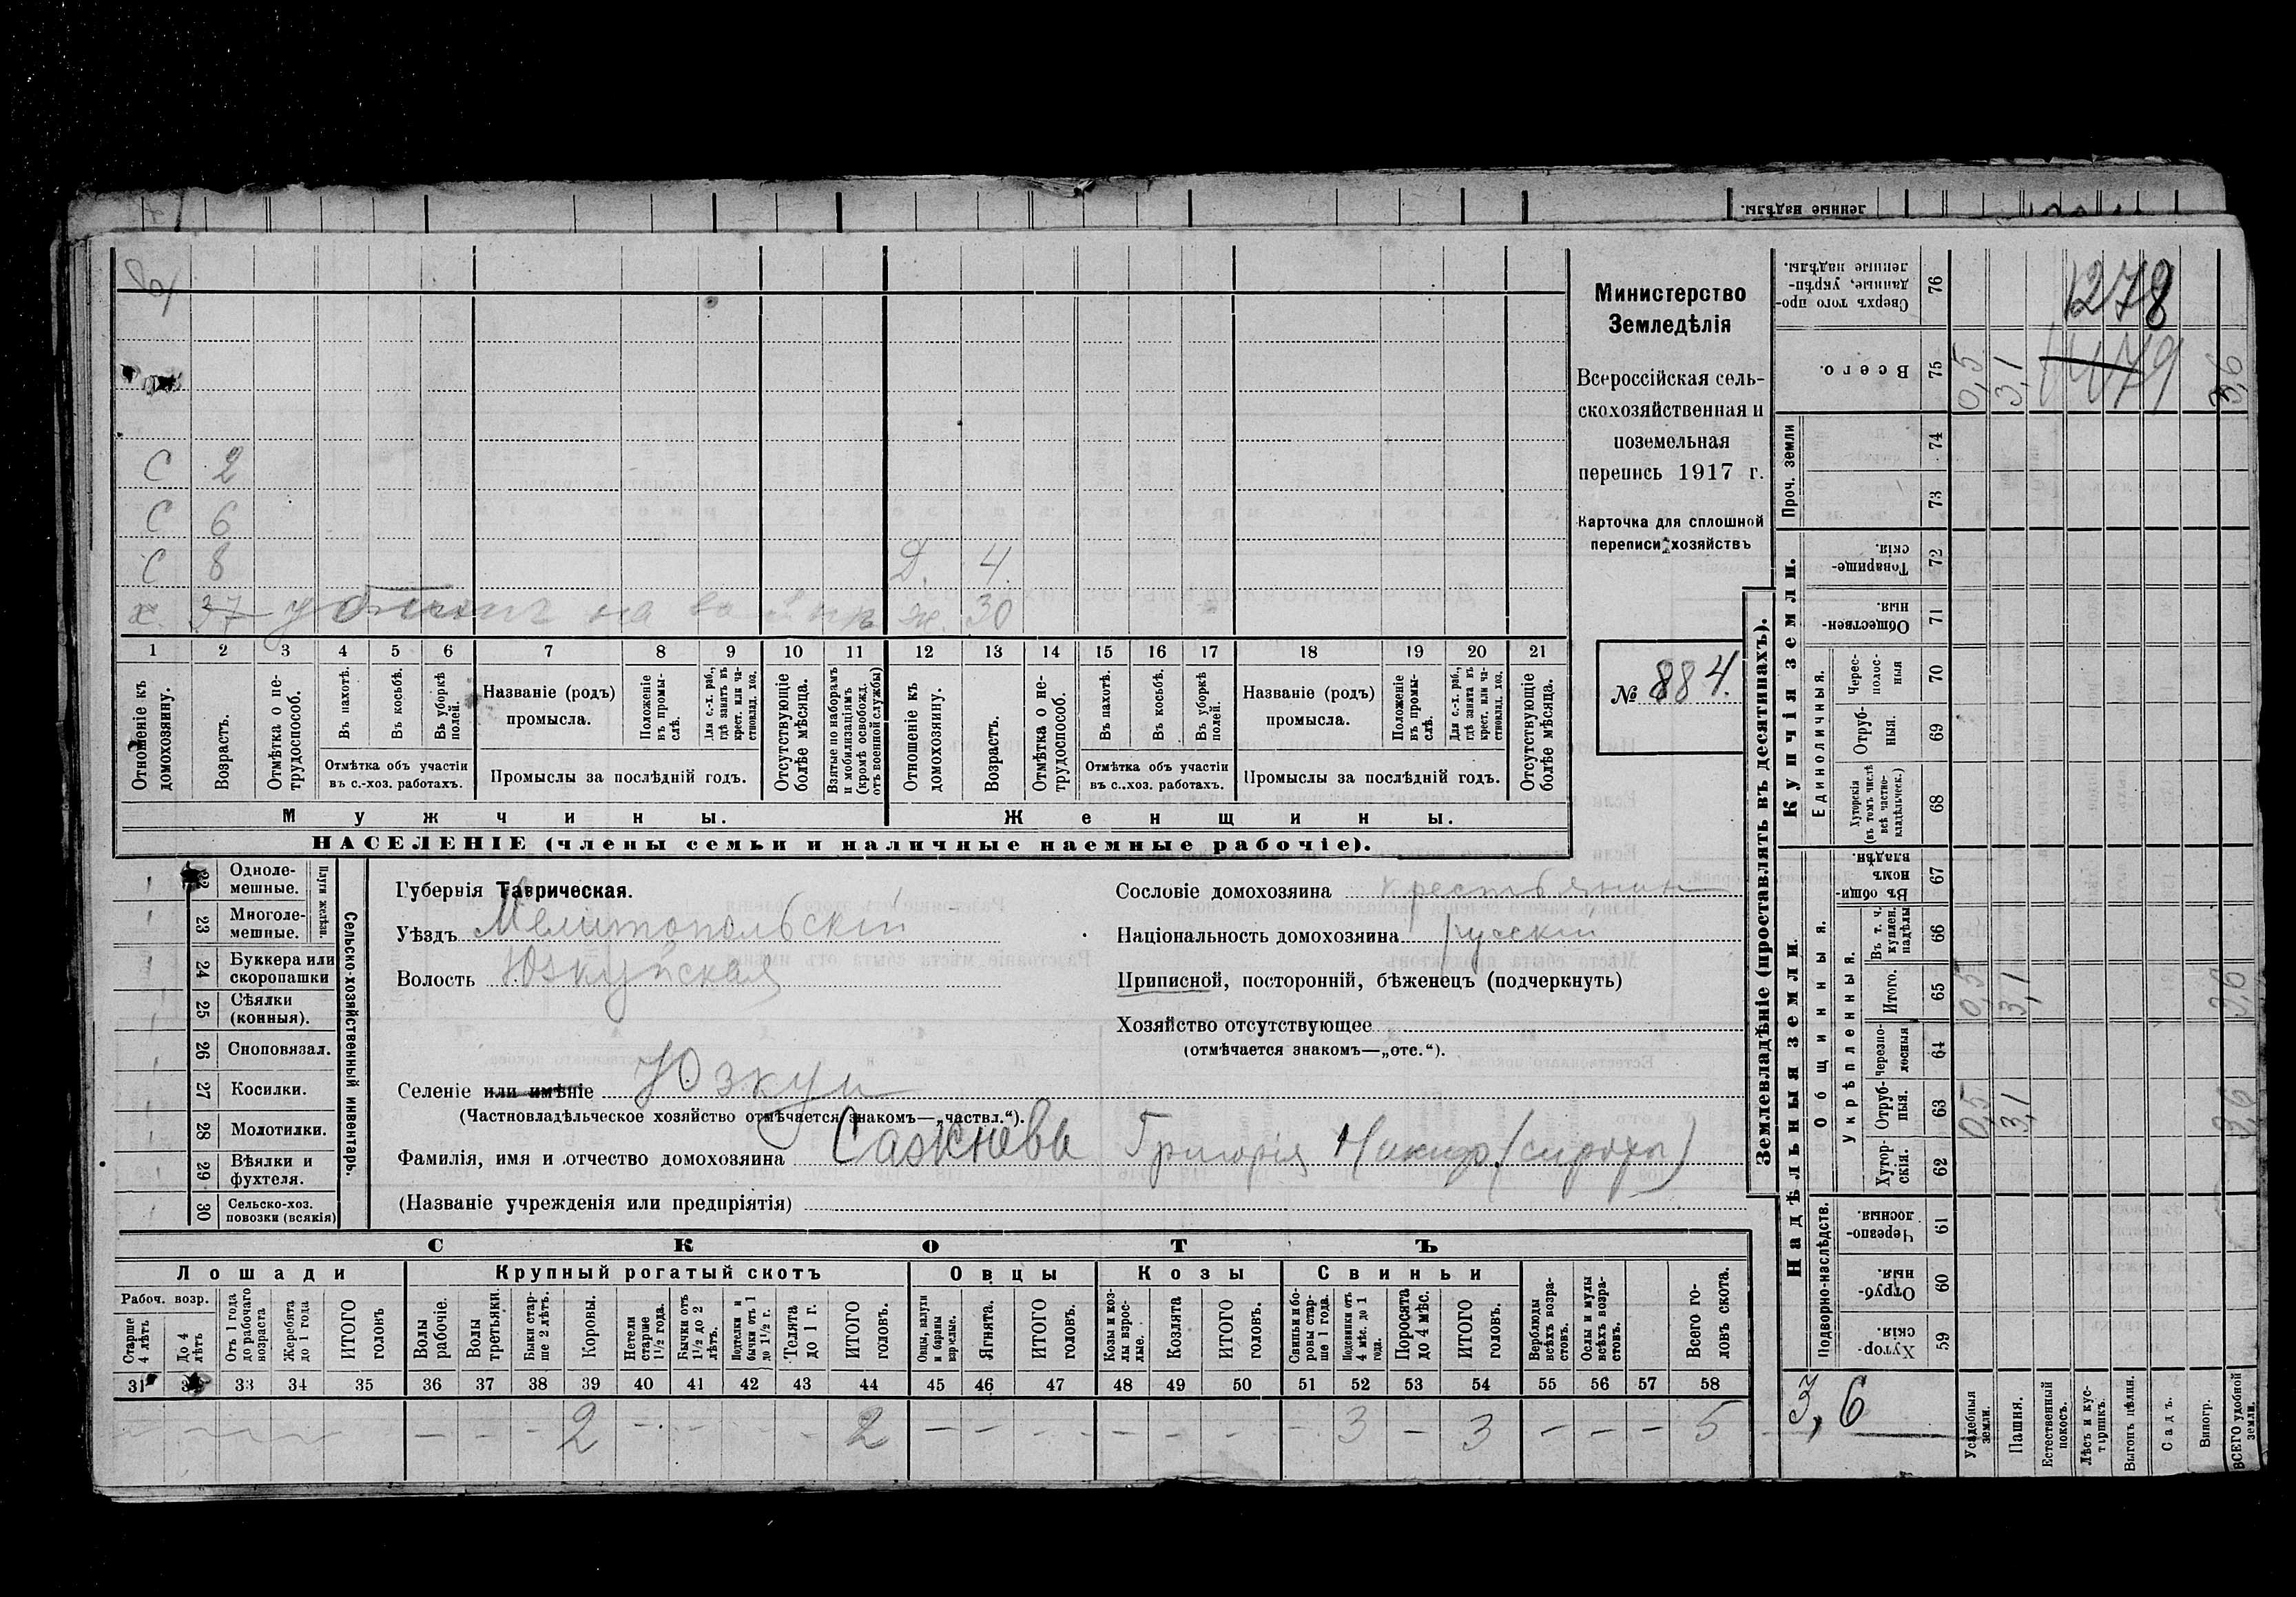 ленные надѣлы.
С 2
С 6
С 8 Д. 4.
х. 37 убитъ на войнѣ ж. 30
1 2 3 4 5 6 7 8 9 10 11 12 13 14 15 16 17 18 19 20 21
Отношеніе къ домохозяину.
Возрастъ.
Отмѣтка о нетрудоспособ.
Въ пахотѣ.
Въ косьбѣ.
Въ уборкѣ полей.
Отмѣтка объ участіи
въ с.-хоз. работахъ.
Названіе (родъ)
промысла.
Положеніе въ промыслѣ.
Для с.-х. раб., гдѣ занятъ въ крест. или частновлад. хоз.
Промыслы за послѣдній годъ.
Отсутствующіе болѣе мѣсяца.
Взятые по наборамъ и мобилизаціямъ (кромѣ освобожд. отъ военной службы)
Отношеніе къ домохозяину.
Возрастъ.
Отмѣтка о нетрудоспособ.
Въ пахотѣ.
Въ косьбѣ.
Въ уборкѣ полей.
Отмѣтка объ участіи
въ с.-хоз. работахъ.
Названіе (родъ)
промысла.
Положеніе въ промыслѣ.
Для с.-х. раб., гдѣ занята въ крест. или частновлад. хоз.
Промыслы за послѣдній годъ.
Отсутствующіе болѣе мѣсяца.
Мужчины.
Женщины.
НАСЕЛЕНІЕ (члены семьи и наличные наемные рабочіе).
Министерство
Земледѣлія
Всероссійская сель-
скохозяйственная и
поземельная
перепись 1917 г.
Карточка для сплошной
переписи хозяйствъ
№ 884.
22 Одноле-
мешные.
23 Многоле-
мешные.
Плуги желѣзн.
24 Буккера или
скоропашки
25 Сѣялки
(конныя).
26 Сноповязал.
27 Косилки.
28 Молотилки.
29 Вѣялки и
фухтеля.
30 Сельско-хоз.
повозки (всякія)
Сельско-хозяйственный инвентарь.
Губернія Таврическая.
Уѣздъ Мелитопольскій
Волость Юзкуйская
Селеніе или имѣніе Юзкуи
(Частновладѣльческое хозяйство отмѣчается знакомъ—„частвл.“).
Фамилія, имя и отчество домохозяина Сажневъ Григорія Никид. (сироты)
(Названіе учрежденія или предпріятія)
Сословіе домохозяина крестьянин
Національность домохозяина русскій
Приписной, посторонній, бѣженецъ (подчеркнуть)
Хозяйство отсутствующее
(отмѣчается знакомъ—„отс.“).
СКОТЪ
Лошади
Крупный рогатый скотъ
Овцы
Козы
Свиньи
Рабоч. возр.
Старше 4 лѣтъ
До 4 лѣтъ
Отъ 1 года до рабочаго возраста
Жеребята до 1 года
ИТОГО головъ
Волы рабочіе.
Волы третьяки.
Быки старше 2 лѣтъ.
Коровы.
Нетели старше 1½ года.
Бычки отъ 1½ до 2 лѣтъ.
Подтелки и бычки отъ 1 до 1½ г.
Телята до 1 г.
ИТОГО головъ.
Овцы, валухи и бараны взрослые.
Ягнята.
ИТОГО головъ.
Козы и козлы взрослые.
Козлята
ИТОГО головъ.
Свиньи и боровы старше 1 года.
Подсвинки отъ 4 мѣс. до 1 года.
Поросята до 4 мѣс.
ИТОГО головъ.
Верблюды всѣхъ возрастовъ.
Ослы и мулы всѣхъ возрастовъ.
Всего головъ скота.
31 33 34 35 36 37 38 39 40 41 42 43 44 45 46 47 48 49 50 51 52 53 54 55 56 57 58
— — — — — — — — 2 — — — — 2 — — — — — — — 3 — 3 — — — 5
Землевладѣніе (проставлять въ десятинахъ).
Купчія земли.
Надѣльныя земли.
Сверхъ того проданные, укрѣпленные надѣлы. 76
1278
Всего. 75 0,5 3,1 1479 3,6
Проч. земли
74
73
Товарищескія. 72
Общественныя. 71
Единоличныя.
Чересполосныя 70
Отрубныя. 69
Хуторскія (въ томъ числѣ всѣ частновладѣльческ.) 68
Общинныя.
Въ общинномъ владѣн. 67
Укрѣпленныя.
Въ т. ч. куплен. надѣлы 66
Итого. 65 0,5 3,1 3,6
Черезполосныя 64
Отрубныя. 63 0,5 3,1 3,6
Хуторскія. 62
Подворно-наслѣдств.
Черезполосныя. 61
Отрубныя. 60
Хуторскія. 59
3,6
Усадебныя земли.
Пашня.
Естественный покосъ.
Лѣсъ и кустарникъ.
Выгонъ цѣлин.
Садъ.
Виногр.
ВСЕГО удобной земли.